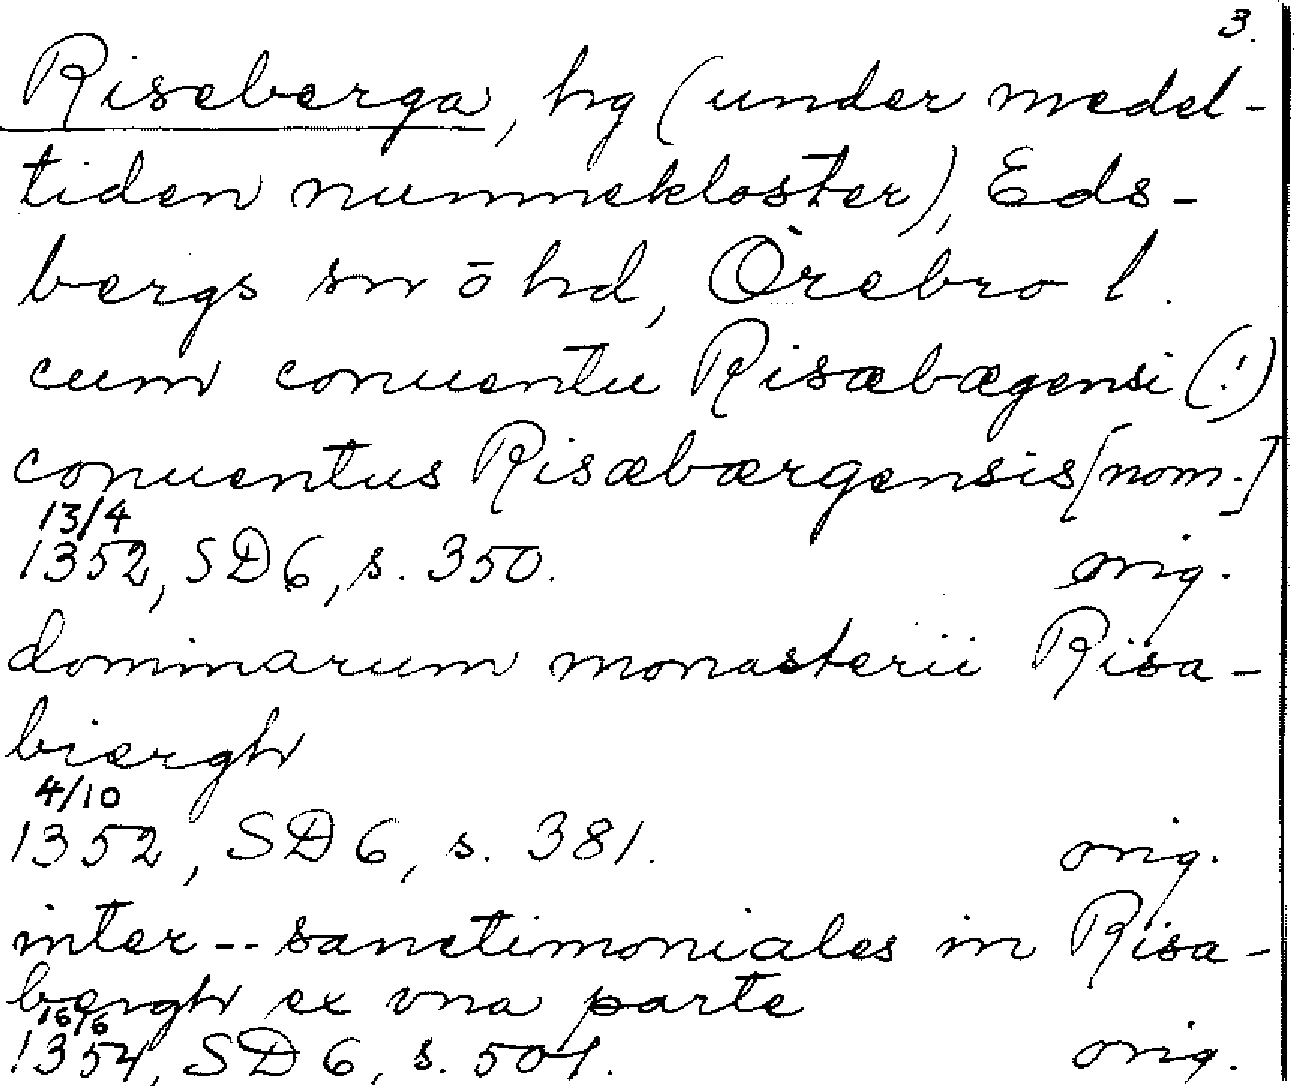 3.
Riseberga, hg (under medel-
tiden nunnekloster), Eds-
bergs sn ō hd, Örebro l.
cum conuentu Risæbægensi (!)
conuentus Risæbærgensis [nom.]
13/4
1352, SD 6, s. 350. orig.
dominarum monasterii Risa-
biærgh
4/10
1352, SD 6, s. 381. orig.
inter -- sanctimoniales in Risa-
bergh ex vna parte
16/6
1354, SD 6, s. 501. orig.